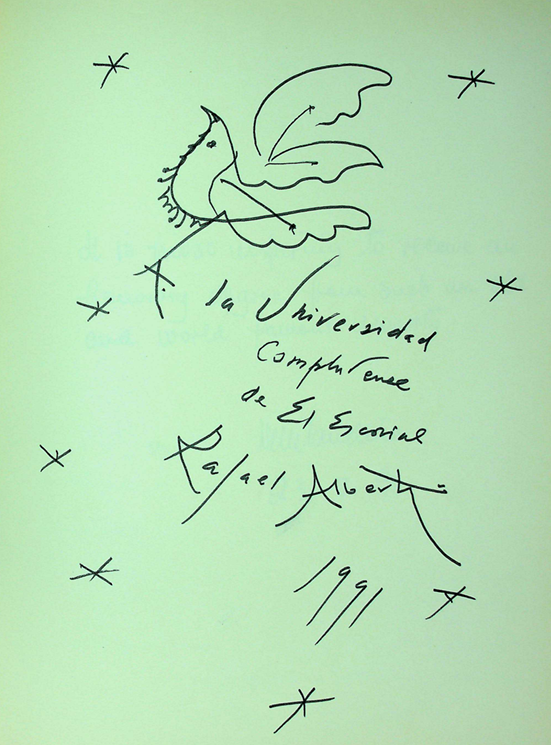 A la Universidad
Complutense
de El Escorial
Rafael Alberti
1991